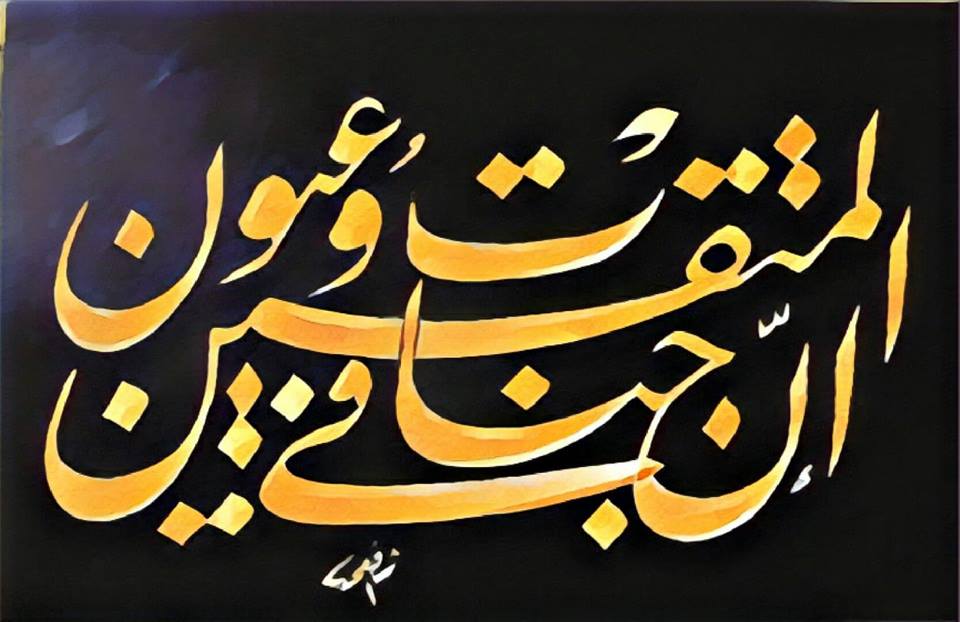 إنّ المتقين في جنات وعيون